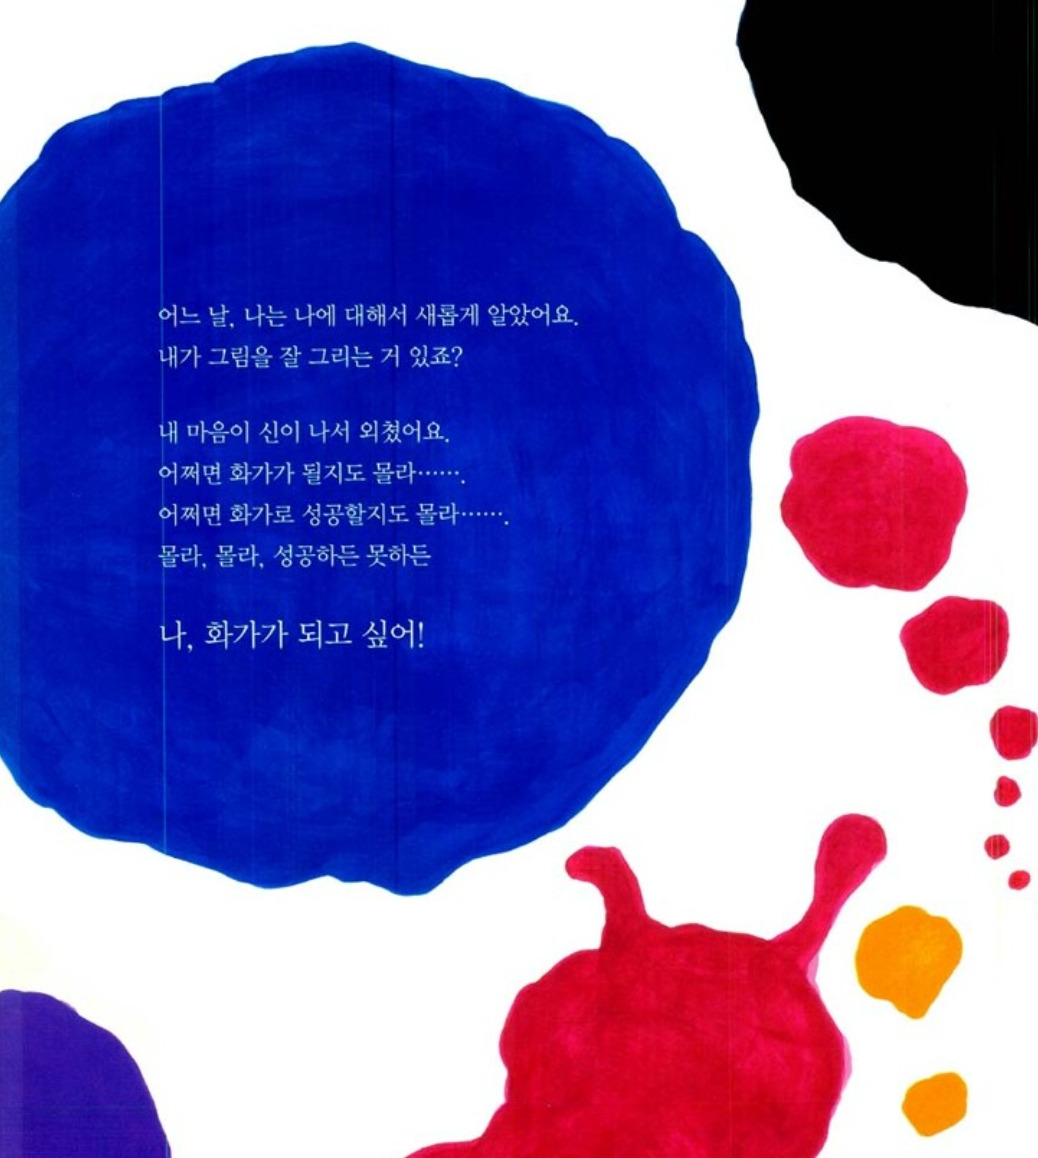 어느 날, 나는 나에 대해서 새롭게 알았어요.
내가 그림을 잘 그리는 거 있죠?
내 마음이 신이 나서 외쳤어요.
어쩌면 화가가 될지도 몰라…….
어쩌면 화가로 성공할지도 몰라…….
몰라, 몰라, 성공하든 못하든
나, 화가가 되고 싶어!